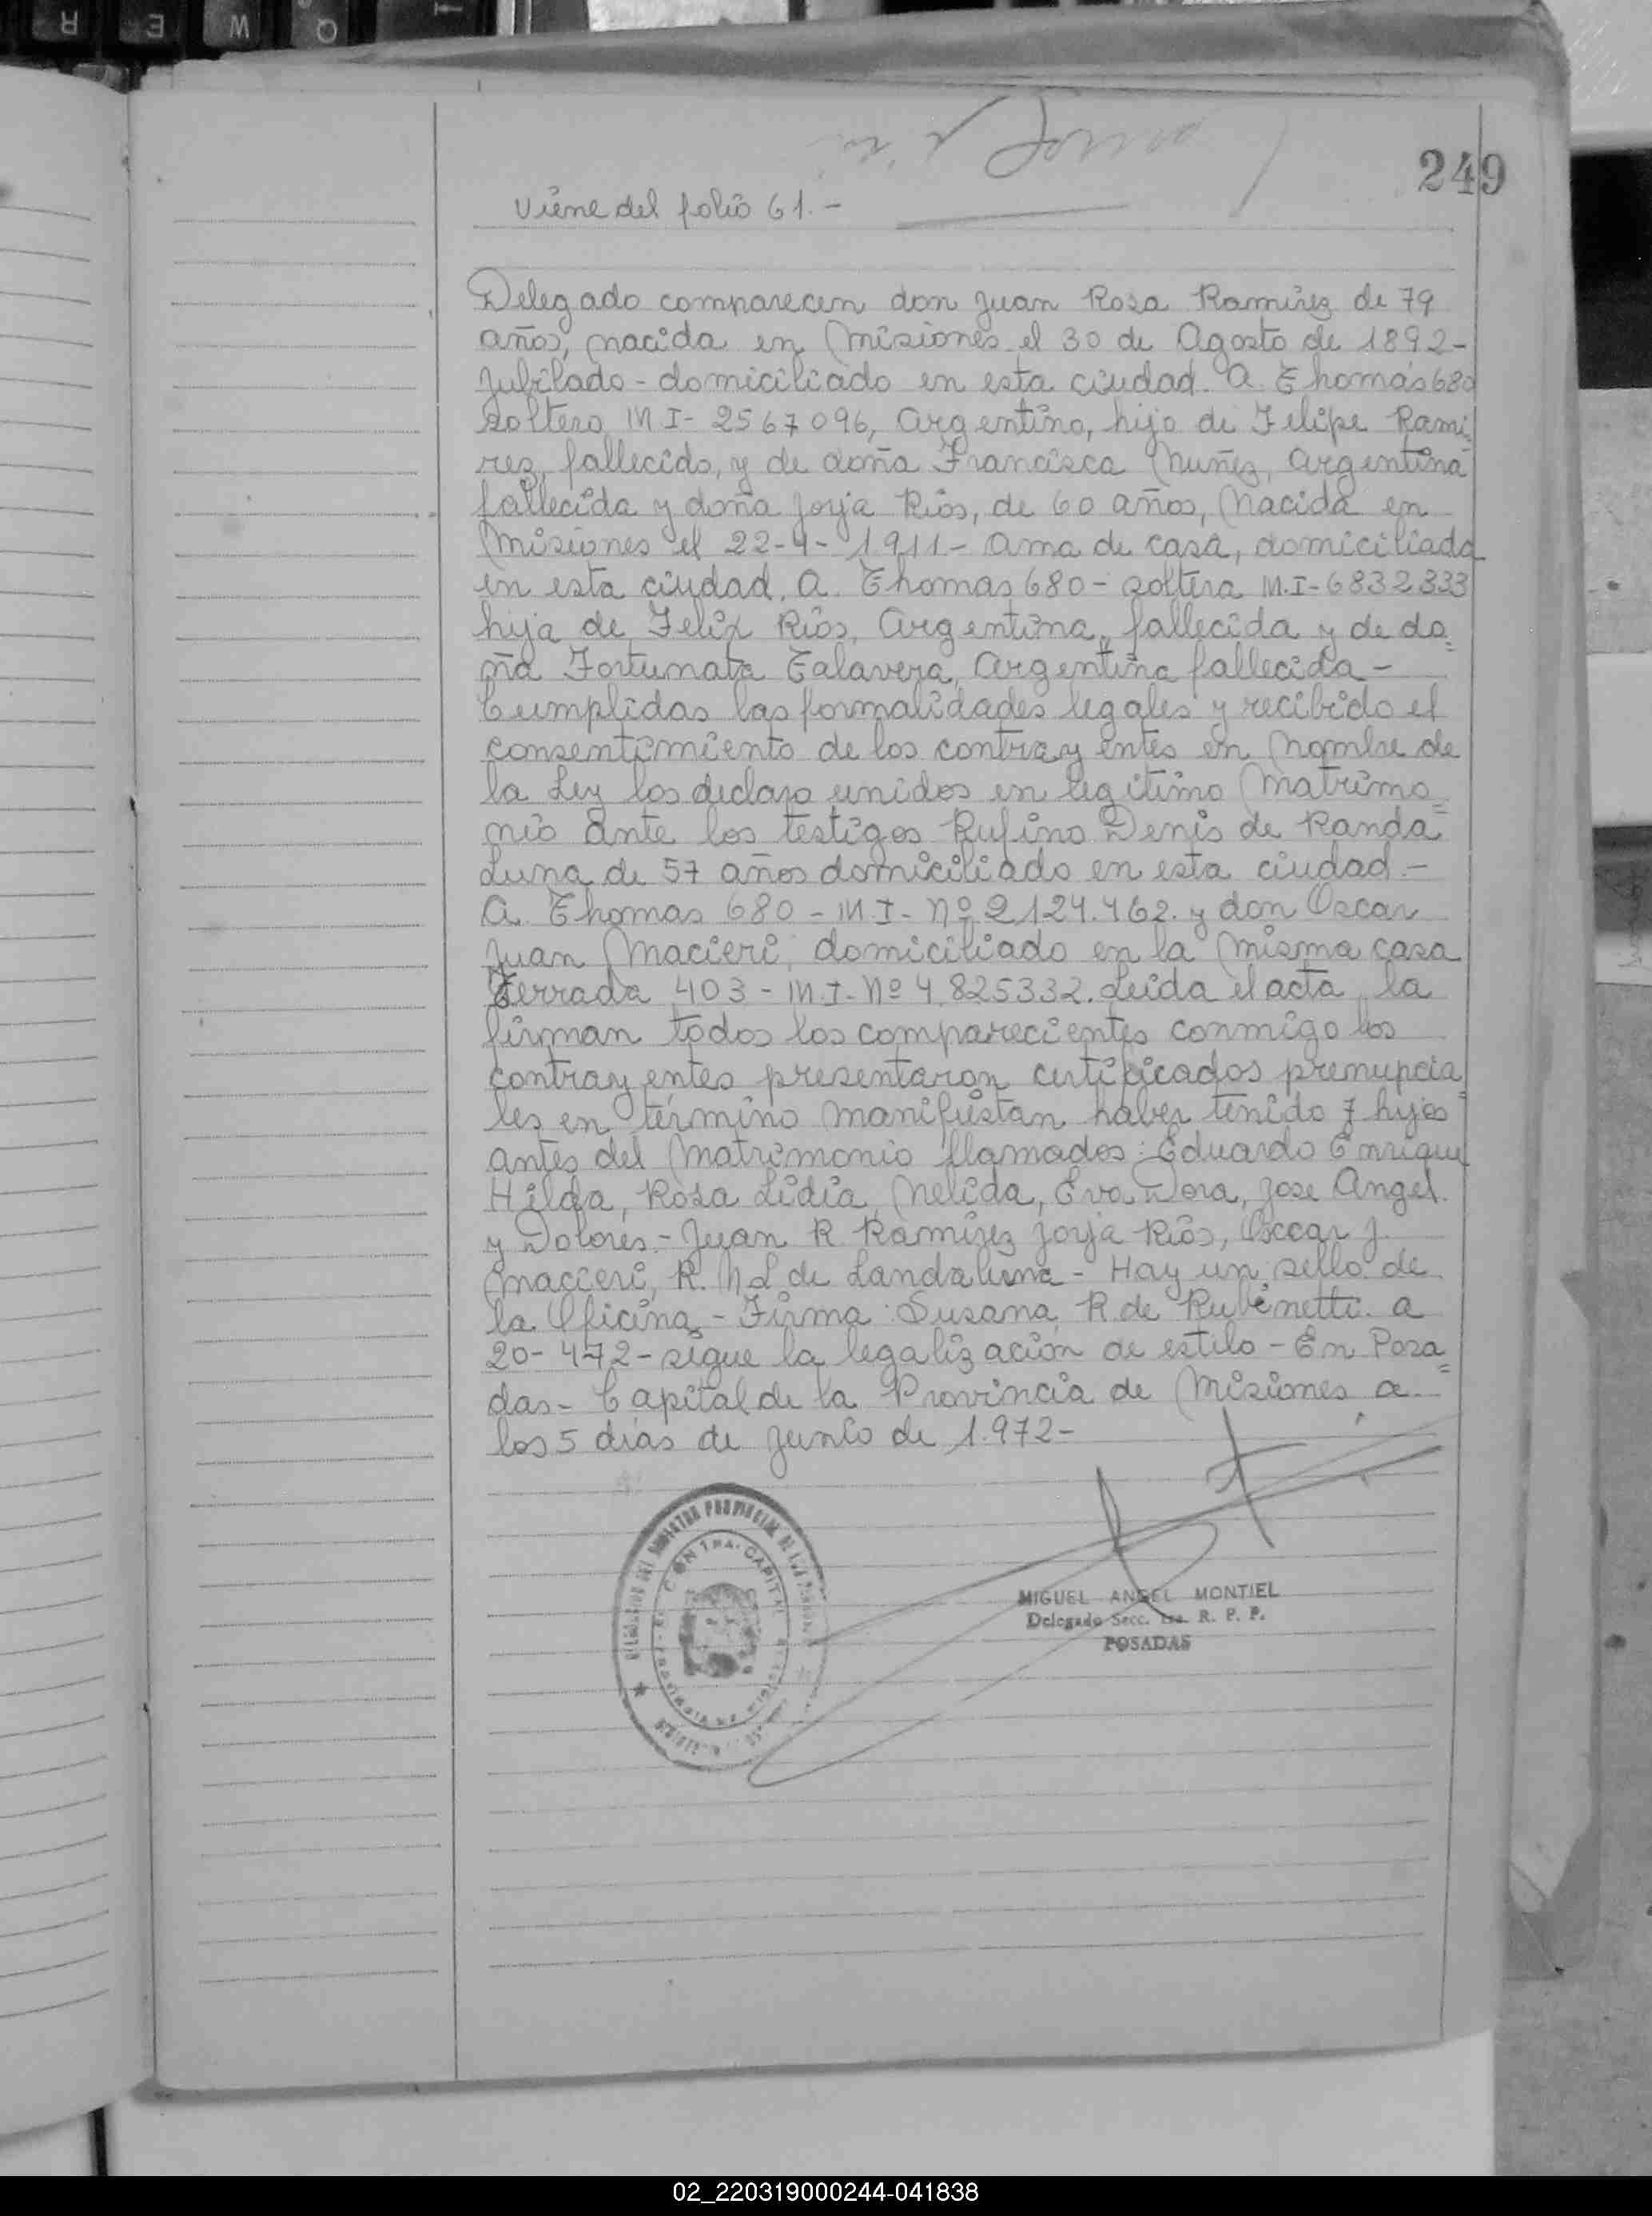 249
Viene del folio 61.-
Delegado comparecen don Juan Rosa Ramirez de 79
años, nacida en Misiones el 30 de Agosto de 1892-
Jubilado - domiciliado en esta ciudad. A. Thomas 680
soltero M I - 2567096, Argentino, hijo de Felipe Rami=
rez, fallecido, y de doña Francisca Nuñez, Argentina
fallecida y doña Jorja Rios, de 60 años, Nacida en
Misiones el 22-4-1911.- Ama de casa, domiciliada
en esta ciudad, A. Thomas 680 - soltera M.I-6832333
hija de Felix Rios, Argentina, fallecida y de do=
ña Fortunata Talavera, Argentina fallecida -
Cumplidas las formalidades legales y recibido el
consentimiento de los contrayentes en Nombre de
la Ley los declaro unidos en legitimo Matrimo=
nio ante los testigos Rufino Denis de Randa=
Luna de 57 años domiciliado en esta ciudad.-
A. Thomas 680 - M.I- Nº 2124.462. y don Oscar
Juan Macieri, domiciliado en la misma casa
Terrada 403 - M.I- Nº 4.825332. Leida el acta, la
firman todos los comparecientes conmigo los
contrayentes presentaron certificados prenupcia=
les en término manifiestan haber tenido 7 hijos
antes del Matrimonio llamados: Eduardo Enrique
Hilda, Rosa Lidia, Nelida, Eva Dora, Jose Angel.
y Dolores.- Juan R Ramirez Jorja Rios, Oscar J.
Macieri, R. N L de Landaluna - Hay un sello de
la Oficina, - Firma: Susana R. de Rubinetti. a
20- 472 - sigue la legalización de estilo - En Posa=
das - Capital de la Provincia de Misiones, a
los 5 dias de Junio de 1.972-
MIGUEL ANGEL MONTIEL
Delegado Secc. 1ra. R. P. P.
POSADAS
02_220319000244-041838